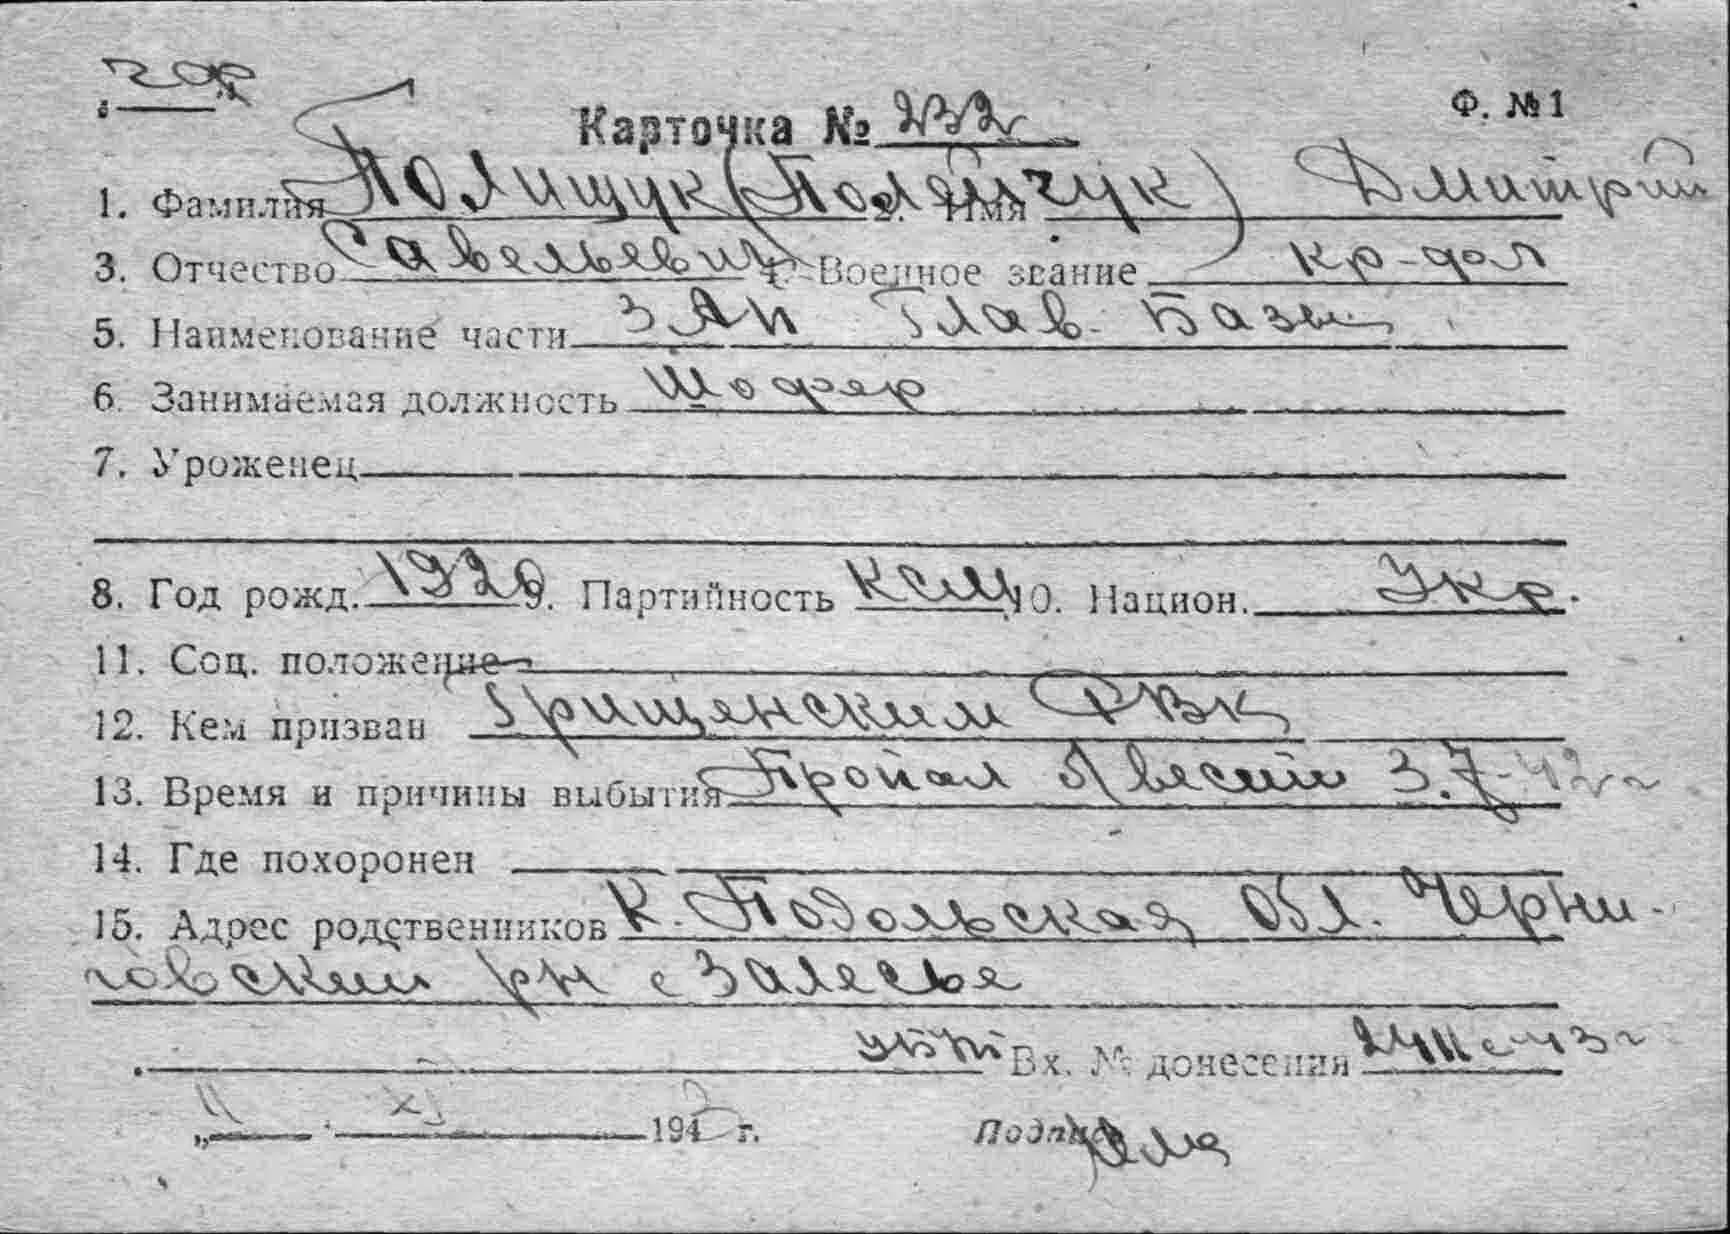 Ф. №1
Карточка № 232
1. Фамилия Полищук (Полейчук) 2. Имя Дмитрий
3. Отчество Савельевич 4. Военное звание кр-фл
5. Наименование части ЗАП Глав. Базы
6. Занимаемая должность Шофер
7. Уроженец
8. Год рожд. 1920 9. Партийность Ксм 10. Национ. Укр.
11. Соц. положение
12. Кем призван Грищенским РВК
13. Время и причины выбытия Пропал б/вести 3.7-42 г
14. Где похоронен
15. Адрес родственников К. Подольская обл. Черни-
говский рн с Залесье
Вх. № донесения 24
„11 XI 1943 г. Подпись